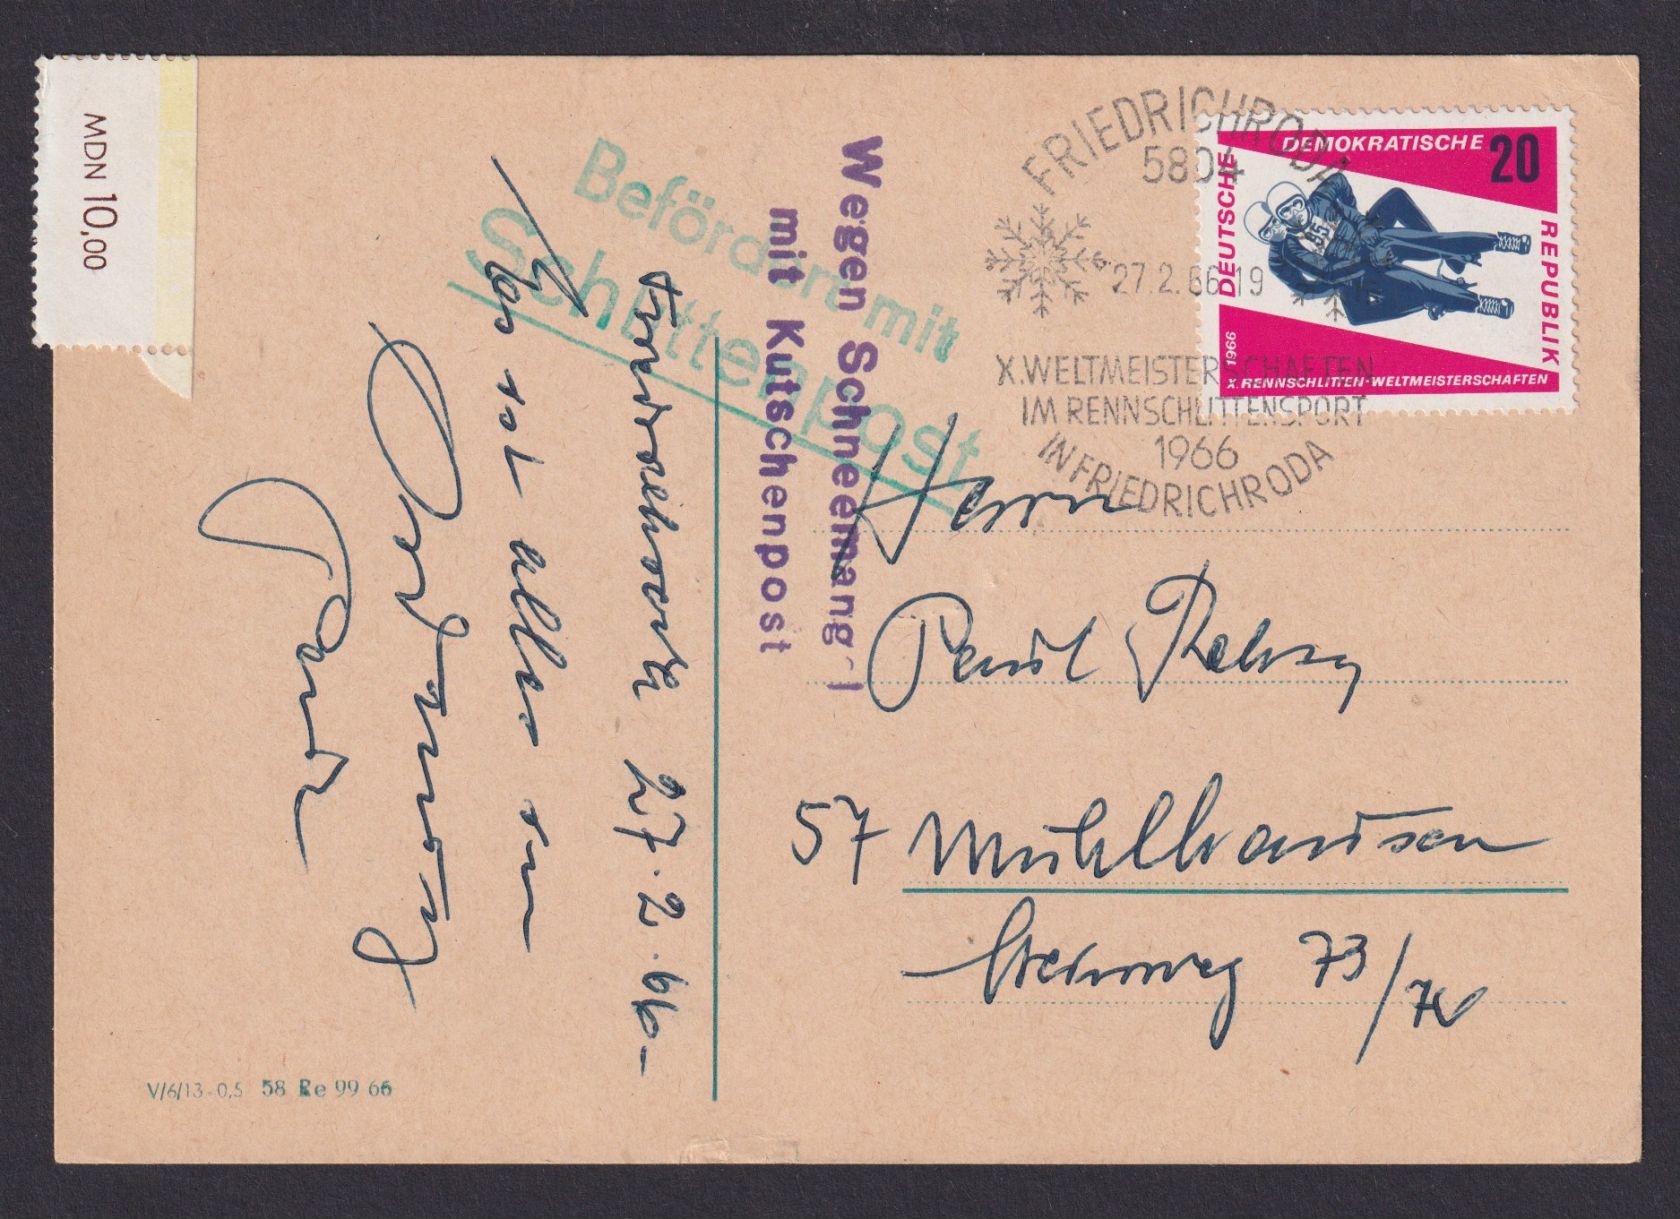 MDN 10,00
Befördert mit
Schlittenpost
Wegen Schneemangel
mit Kutschenpost
FRIEDRICHRODA
5804
27.2.66-19
X. WELTMEISTERSCHAFTEN
IM RENNSCHLITTENSPORT
1966
IN FRIEDRICHRODA
DEUTSCHE
DEMOKRATISCHE
REPUBLIK
20
1966
X. RENNSCHLITTEN-WELTMEISTERSCHAFTEN
27.2.66
ist alles in
Ordnung
Paul
Herrn
Paul
57 Mühlhausen
73/74
V/6/13-0,5 58 Re 99 66